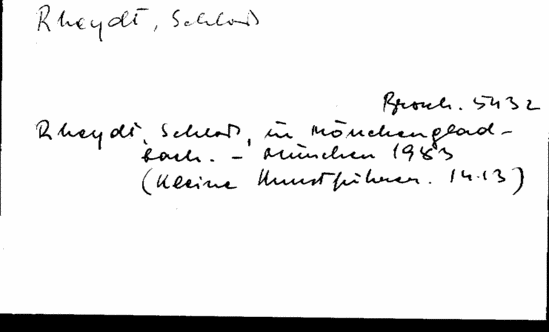 Rheydt, Schloß
Brosch. 5432
Rheydt, Schloß, in Mönchenglad-
bach. - München 1983
(Kleine Kunstführer. 1413)